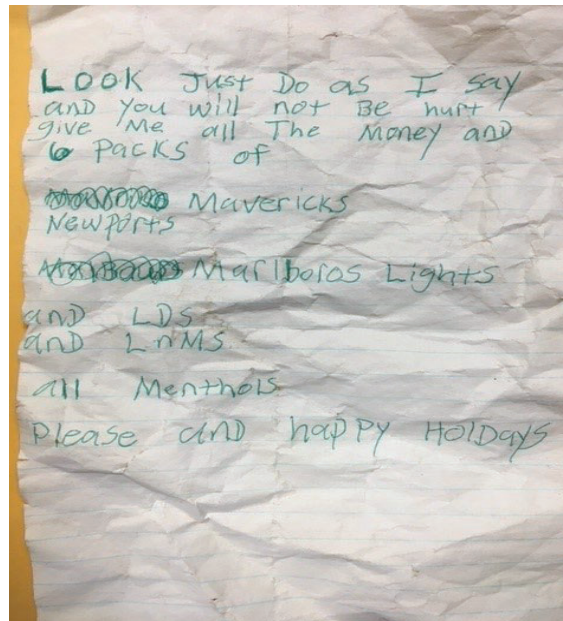 LOOK Just Do as I say
and you will not Be hurt
give Me all The Money and
6 PACKS of
Mavericks
Newports
Marlboros Lights
and LDS
and LnMS
all Menthols
Please and happy HolDays